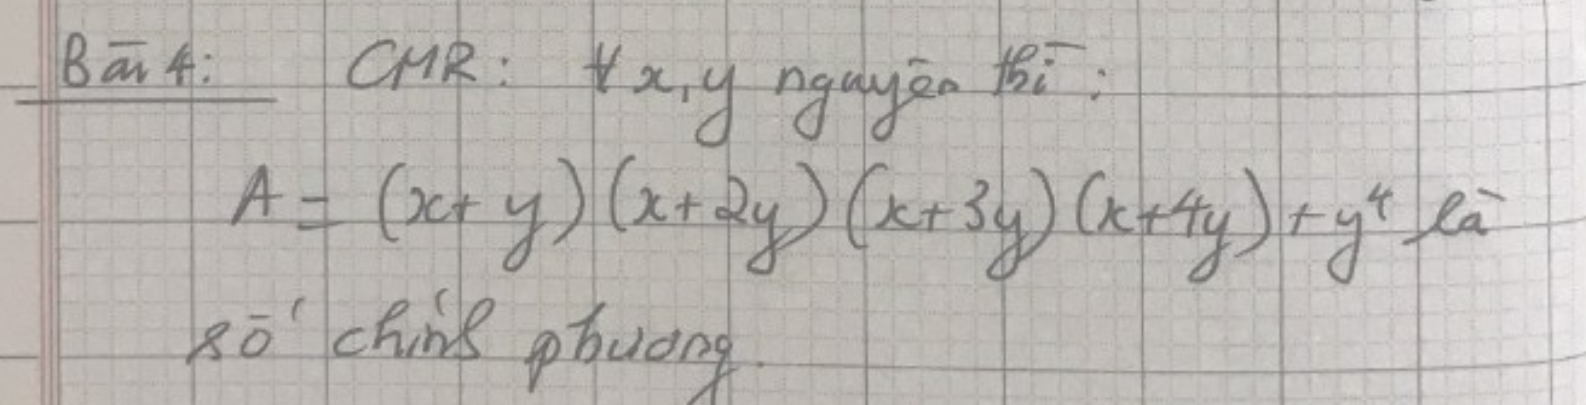 Bài 4: CMR: ∀x,y nguyên thì:
A = (x+y)(x+2y)(x+3y)(x+4y)+y⁴ là
số chính phương.